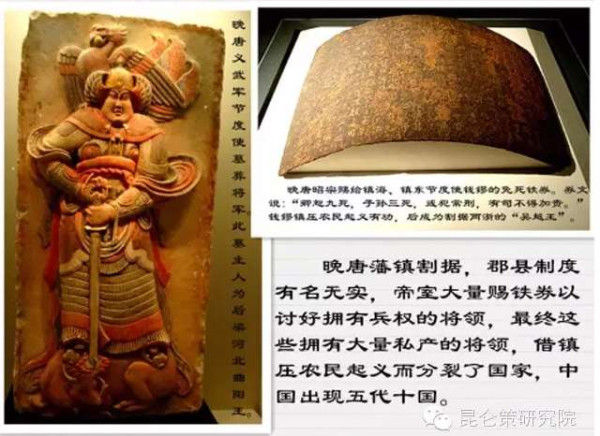 晚唐义武军节度使墓葬将军此墓主人为后梁河北曲阳王。
晚唐昭宗赐给镇海、镇东节度使钱镠的免死铁券。券文
说：“卿恕九死，子孙三死，或犯常刑，有司不得加责。”
钱镠镇压农民起义有功，后成为割据两浙的“吴越王”。
晚唐藩镇割据，郡县制度
有名无实，帝室大量赐铁券以
讨好拥有兵权的将领，最终这
些拥有大量私产的将领，借镇
压农民起义而分裂了国家，中
国出现五代十国。
昆仑策研究院